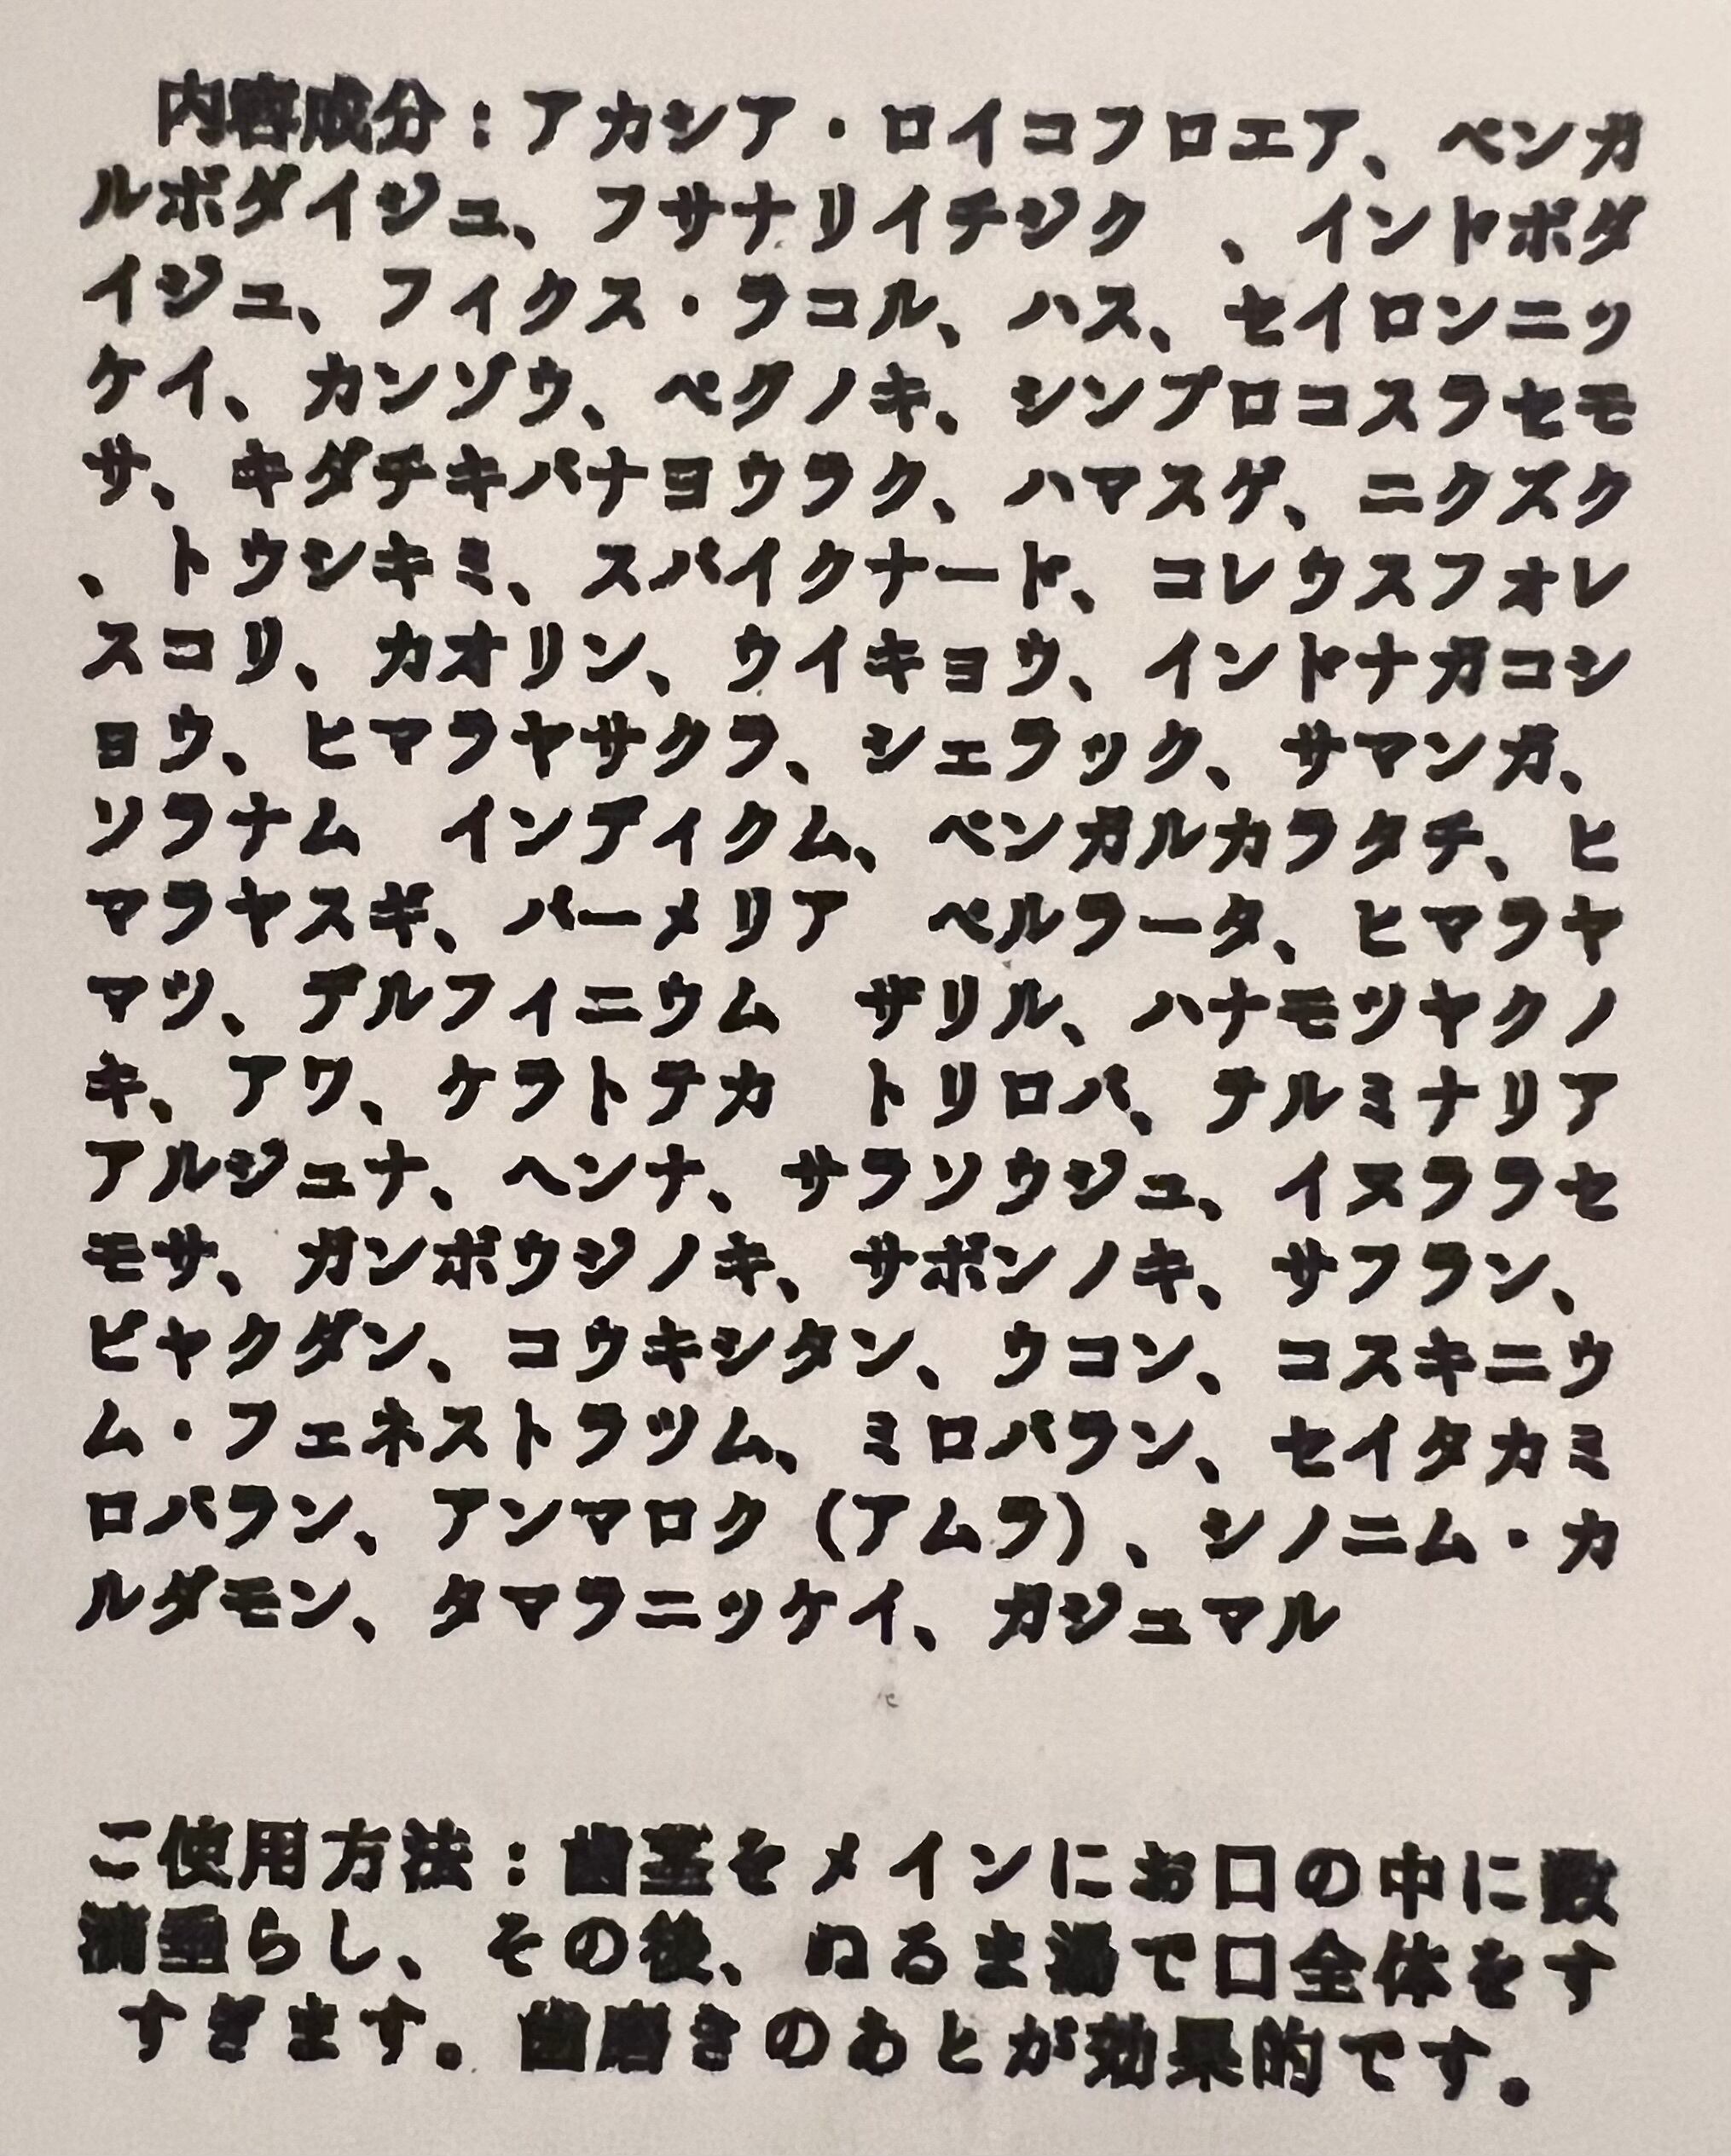 内容成分：アカシア・ロイコフロエア、ベンガ
ルボダイジュ、フサナリイチジク　、インドボダ
イジュ、フィクス・ラコル、ハス、セイロンニッ
ケイ、カンゾウ、ペグノキ、シンプロコスラセモ
サ、キダチキバナヨウラク、ハマスゲ、ニクズク
、トウシキミ、スパイクナード、コレウスフォレ
スコリ、カオリン、ウイキョウ、インドナガコシ
ョウ、ヒマラヤサクラ、シェラック、サマンガ、
ソラナム　インディクム、ベンガルカラタチ、ヒ
マラヤスギ、パーメリア　ペルラータ、ヒマラヤ
マツ、デルフィニウム　ザリル、ハナモツヤクノ
キ、アワ、ケラトテカ　トリロバ、テルミナリア
アルジュナ、ヘンナ、サラソウジュ、イヌララセ
モサ、ガンボウジノキ、サボンノキ、サフラン、
ビャクダン、コウキシタン、ウコン、コスキニウ
ム・フェネストラツム、ミロバラン、セイタカミ
ロバラン、アンマロク（アムラ）、シノニム・カ
ルダモン、タマラニッケイ、ガジュマル
ご使用方法：歯茎をメインにお口の中に数
滴垂らし、その後、ぬるま湯で口全体をす
すぎます。歯磨きのあとが効果的です。